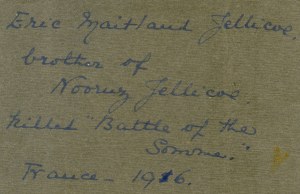 Eric Maitland Jellicoe,
brother of
Nooruz Jellicoe,
killed "Battle of the
Somme."
France - 1916.